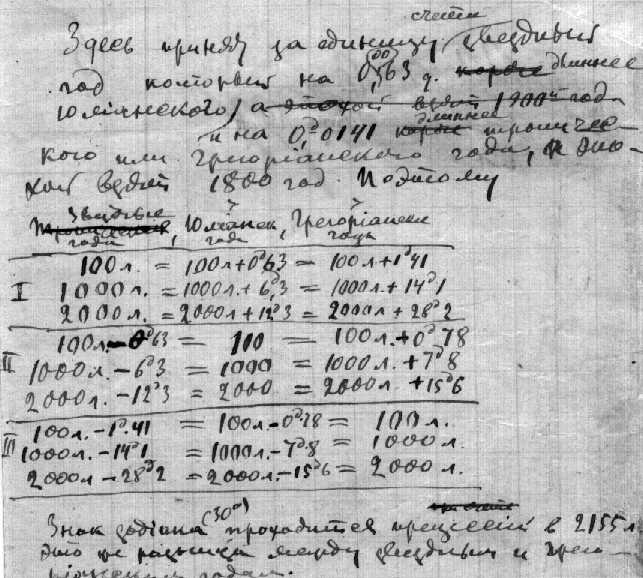 счета
Здесь принят за единицу звездный
год который на 0,0063 д. короче длиннее
юлианского, а эпохой взят 1900й год
длиннее
и на 0,д0141 короче тропичес-
кого или Грегоріанского года, а эпо-
хой взят 1800 год. Поэтому
Звездные
года, Юліанск. года, Грегоріанск. года
I 100л. = 100л+0д63 = 100л+1д41
1000л. = 1000л.+6д3 = 1000л+14д1
2000л. = 2000л+12д3 = 2000л+28д2
II 100л-0д63 = 100 = 100л.+0д78
1000л.-6д3 = 1000 = 1000л.+7д8
2000л.-12д3 = 2000 = 2000л+15д6
III 100л.-1д.41 = 100л.-0д78 = 100л.
1000л.-14д1 = 1000л.-7д.8 = 1000л.
2000л-28д2 = 2000л.-15д6 = 2000л.
Знак зодіака (30°) проходится прецессией в 2155л
это же разница между звездным и грего-
ріанским годам.